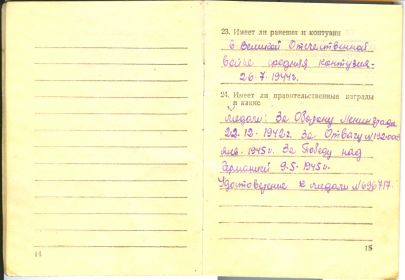 23. Имеет ли ранения и контузии
в Великой Отечественной
войне средняя контузия-
26.7.1944г.
24. Имеет ли правительственные награды
и какие
медали: За Оборону Ленинграда
22.12-1942г. За Отвагу №1921003
янв-1945г. За Победу над
Германией 9.5-1945г.
Удостоверение к медали №696717.
14
15